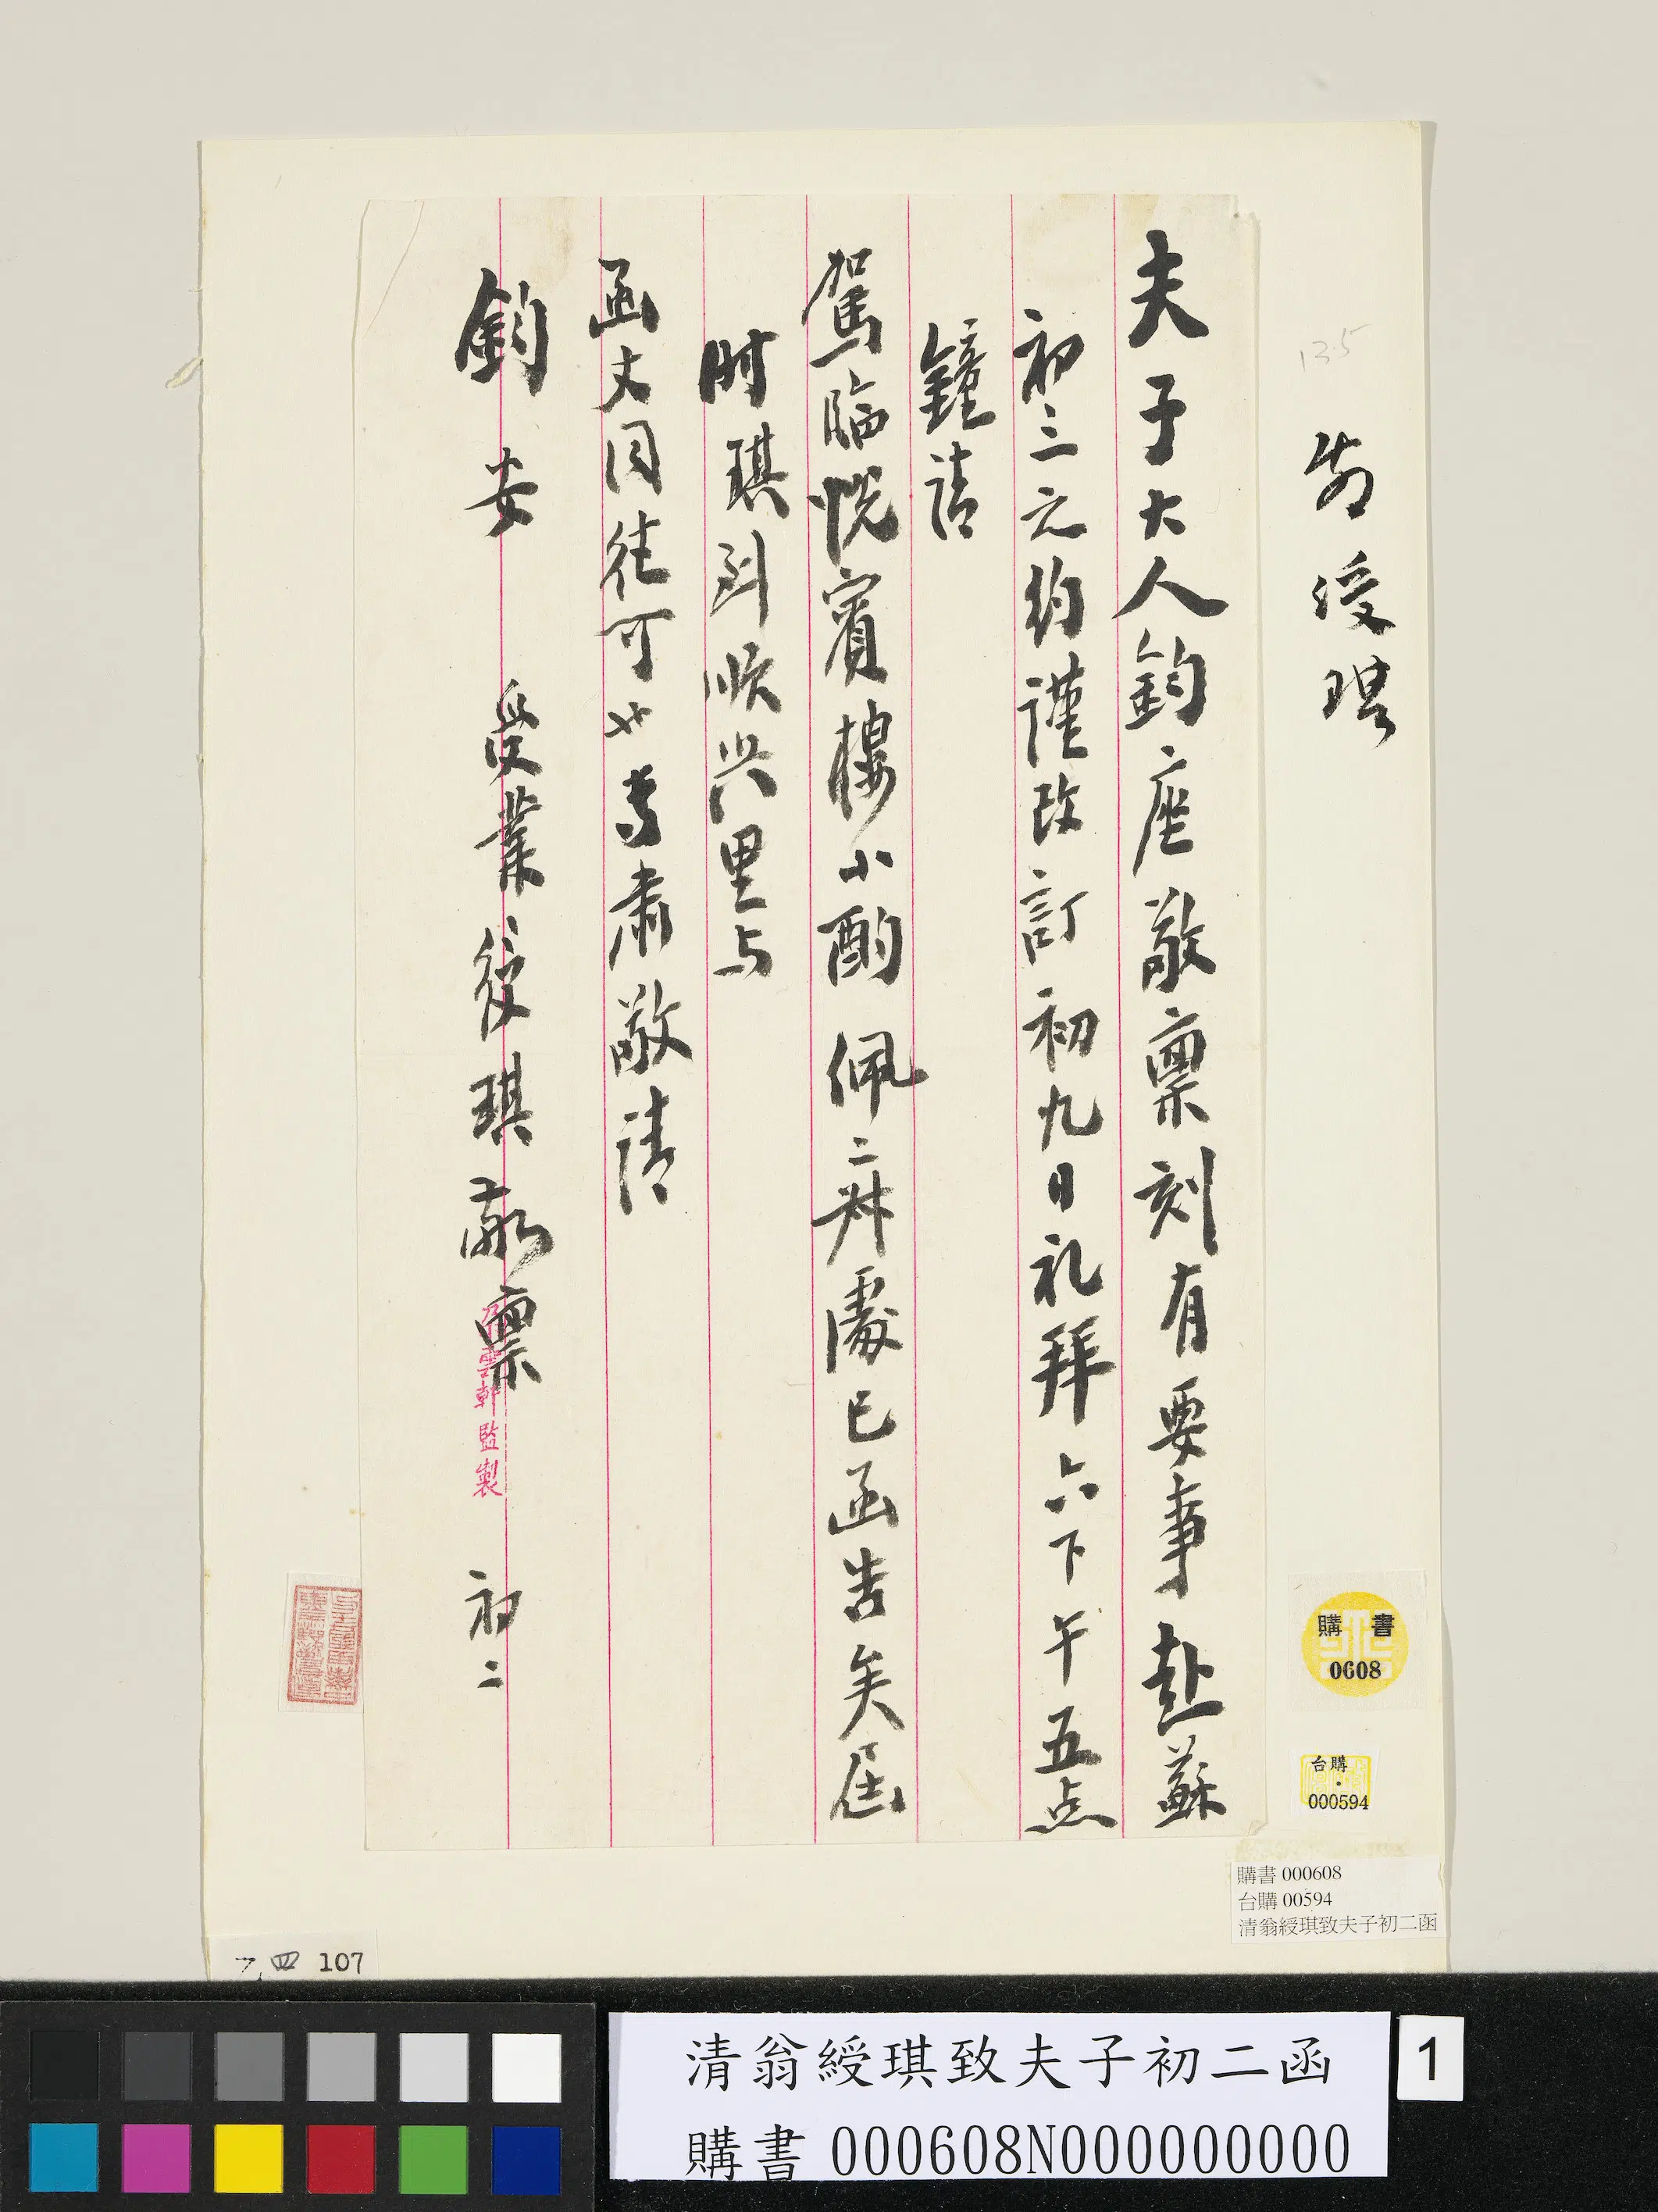 夫子大人鈞座敬稟刻有要事赴蘇
初三之約謹改訂初九日礼拜六下午五点
鐘請
駕臨悦賓樓小酌佩二舜處已函告矣屆
时琪到順興里与
函丈同往可也專肅敬請
鈞安
受業綬琪敬稟
初二
雲軒監製
綬琪
13.5
購書
0608
台購
000594
購書 000608
台購 00594
清翁綬琪致夫子初二函
乙四 107
清翁綬琪致夫子初二函
購書 000608N000000000
1